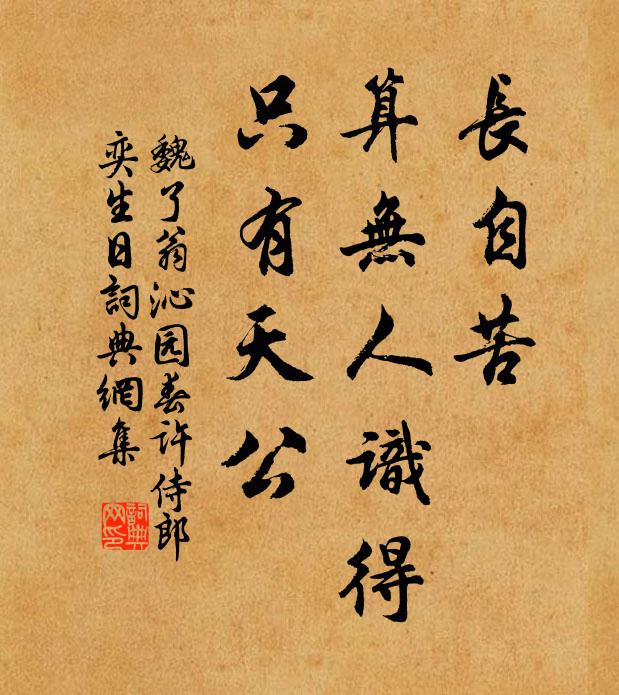 長自苦
算無人識得
只有天公
魏了翁沁园春许侍郎
奕生日詞典網集
詞典
网印